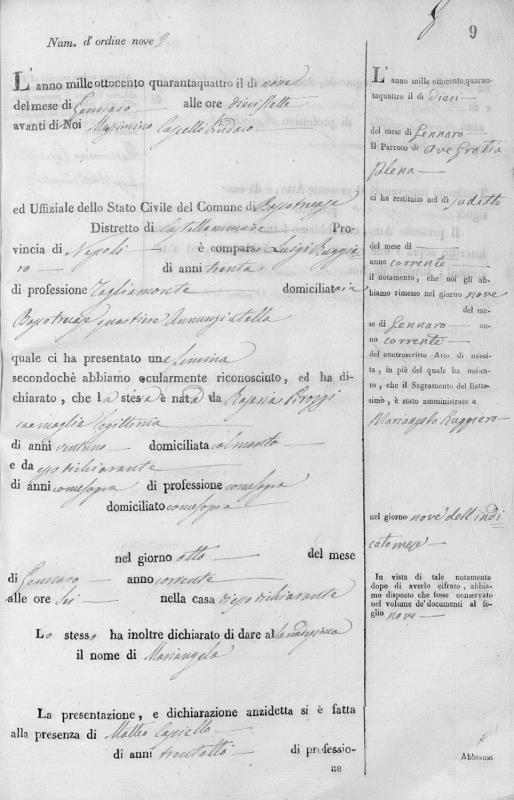 9
Num. d'ordine nove 9
L'anno mille ottocento quarantaquattro il dì nove
del mese di Gennaro alle ore diecisette
avanti di Noi Massimino Caselli Sindaco
ed Uffiziale dello Stato Civile del Comune di Boscotrecase
Distretto di Castellammare Pro-
vincia di Napoli è comparso Luigi Ruggie
ro di anni trenta
di professione Tagliamonte domiciliato in
Boscotrecase quartiere Annunziatella
quale ci ha presentato una femina
secondochè abbiamo ocularmente riconosciuto, ed ha di-
chiarato, che la stessa è nata da Rosaria
sua moglie legittima
di anni ventuno domiciliata col marito
e da esso dichiarante
di anni come sopra di professione come sopra
domiciliato come sopra
nel giorno otto del mese
di Gennaro anno corrente
alle ore sei nella casa di esso dichiarante
Lo stesso ha inoltre dichiarato di dare alla medesima
il nome di Mariangela
La presentazione, e dichiarazione anzidetta si è fatta
alla presenza di Matteo
di anni trentotto di professio-
ne
L'anno mille ottocento quaran-
taquattro il dì dieci
del mese di Gennaro
Il Parroco di Ave Gratia
Plena
ci ha restituito nel dì sudetto
del mese di
anno corrente
il notamento, che noi gli ab-
biamo rimesso nel giorno nove
del me-
se di Gennaro an-
no corrente
del controscritto Atto di nasci-
ta, in piè del quale ha indica-
to, che il Sagramento del Batte-
simo, è stato amministrato a
Mariangela Ruggiero
nel giorno nove dell'indi
cato mese
In vista di tale notamento
dopo di averlo cifrato, abbia-
mo disposto che fosse conservato
nel volume de' documenti al fo-
glio nove
Abbiamo